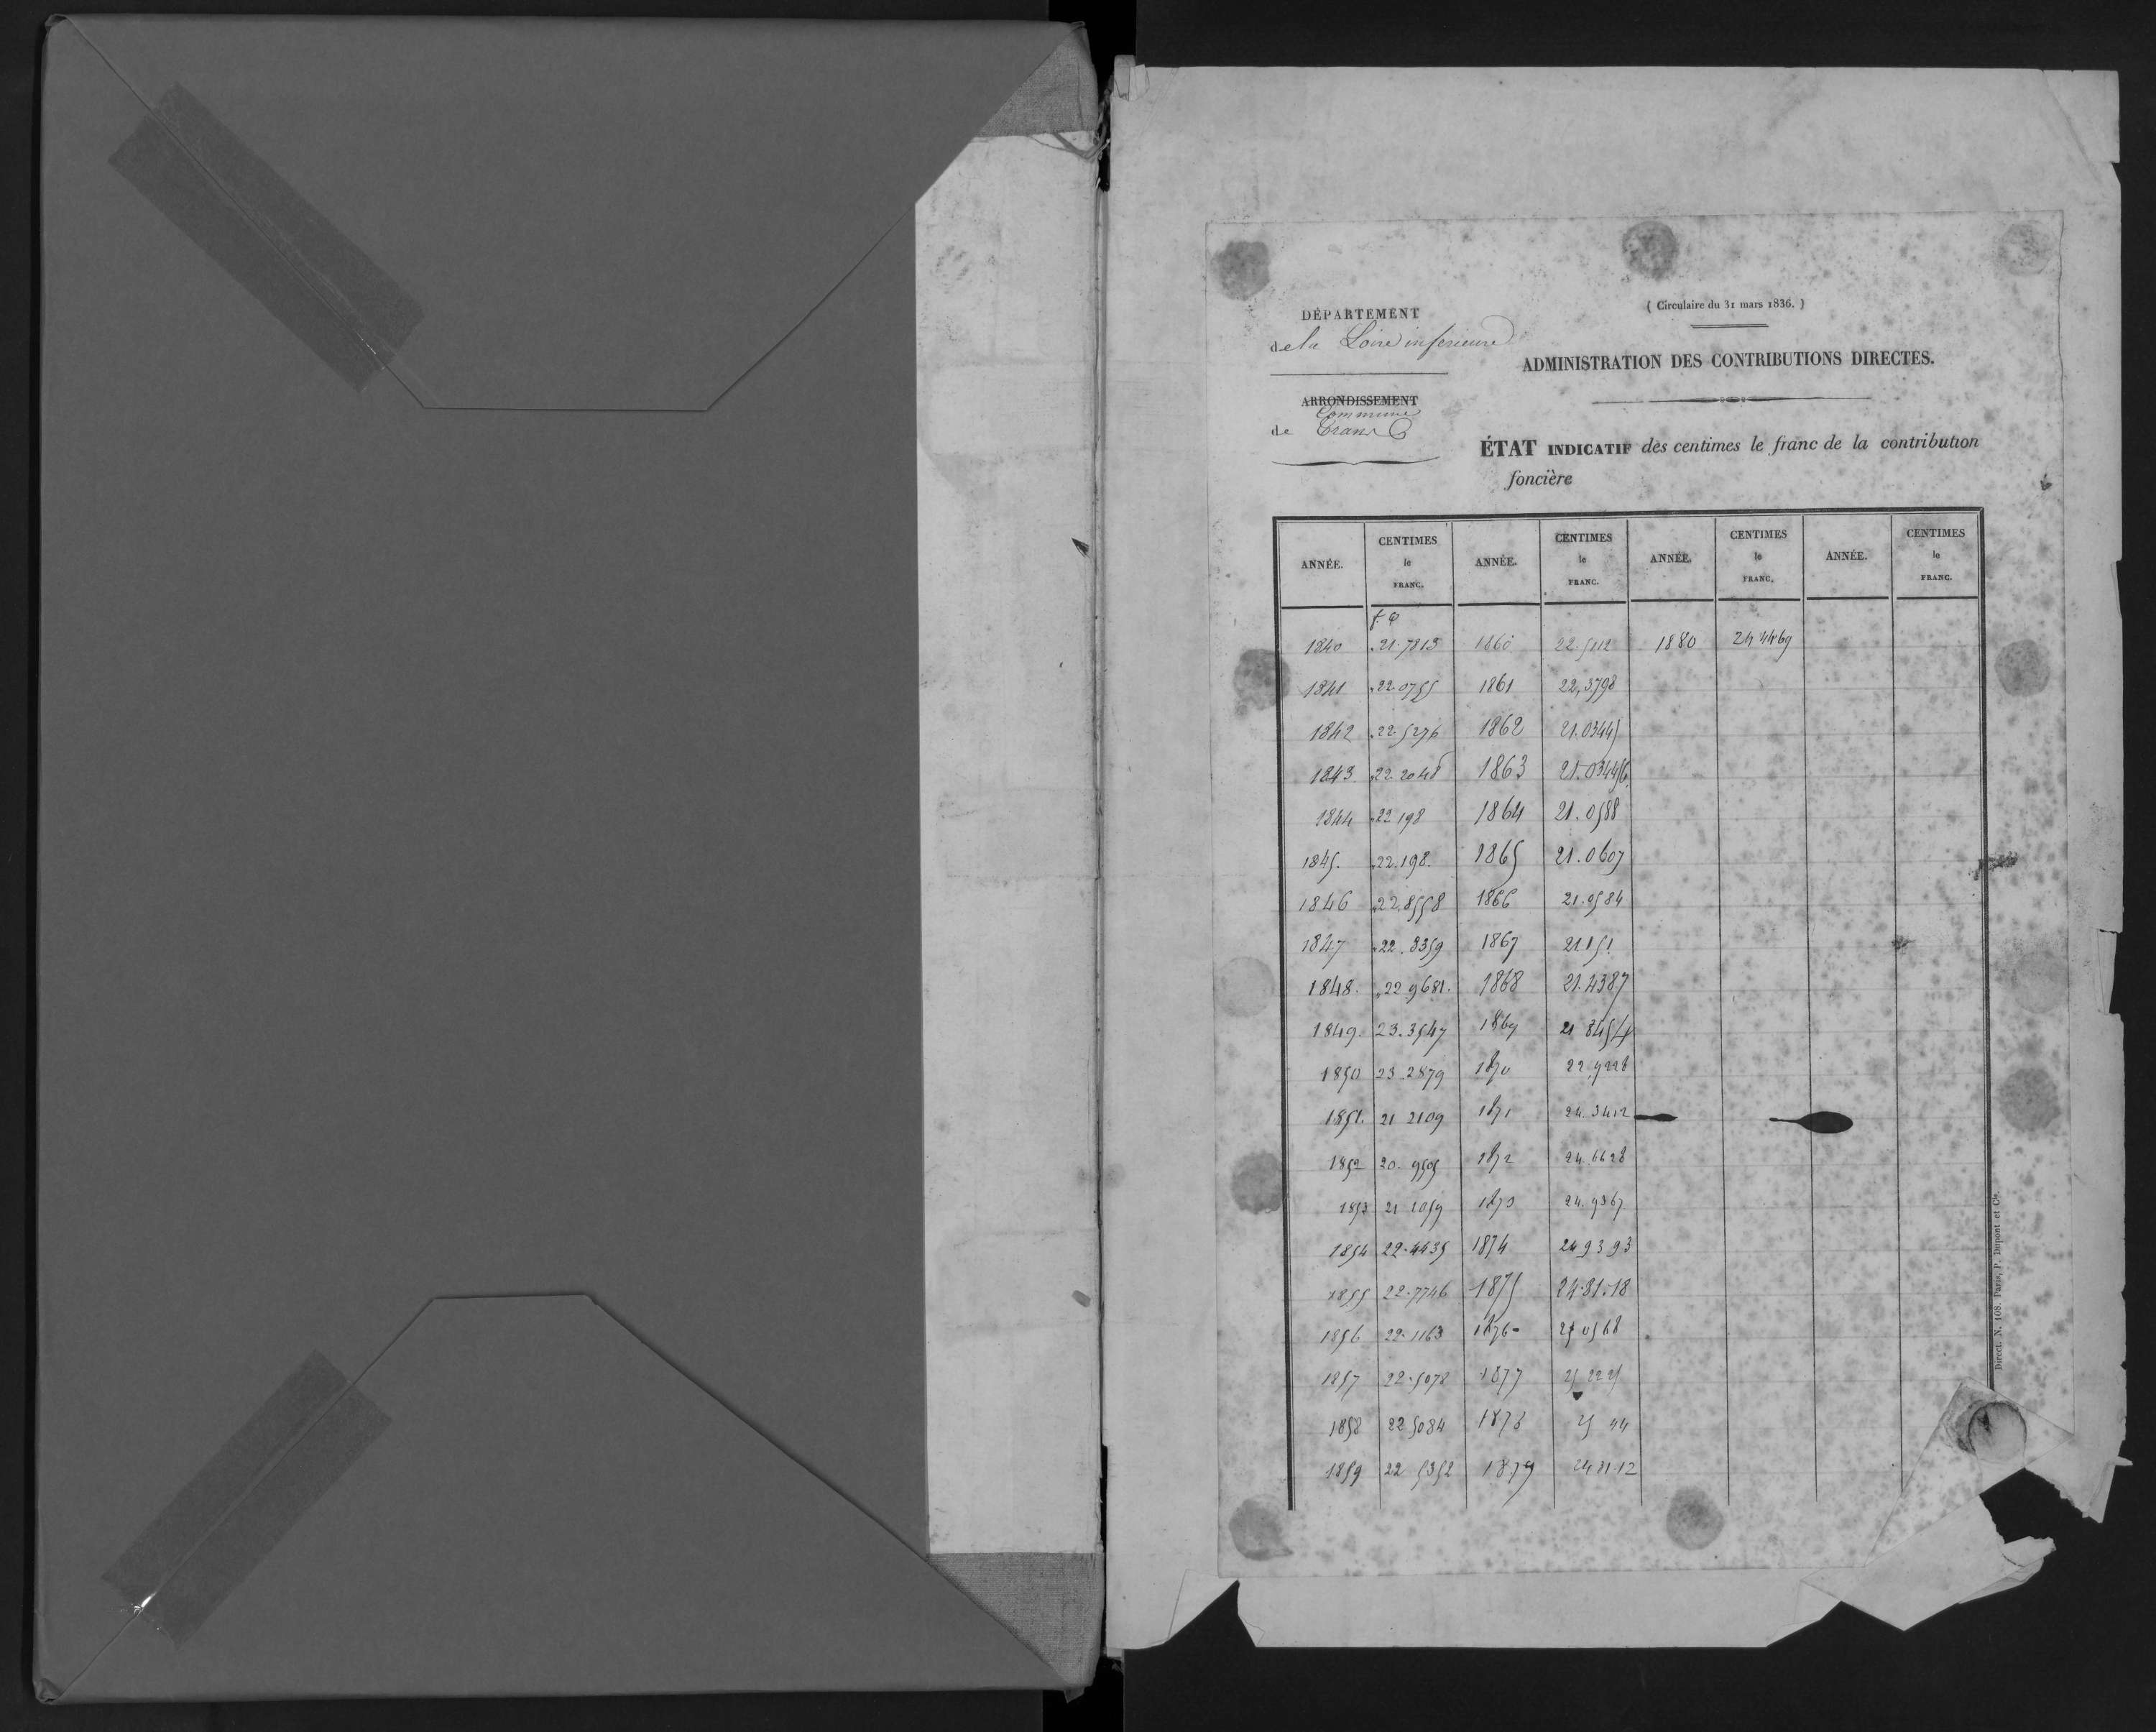 DÉPARTEMENT
de la Loire inférieure
ARRONDISSEMENT
Commune
de Trans
( Circulaire du 31 mars 1836. )
ADMINISTRATION DES CONTRIBUTIONS DIRECTES.
ÉTAT INDICATIF des centimes le franc de la contribution
foncière
ANNÉE. CENTIMES le FRANC. ANNÉE. CENTIMES le FRANC. ANNÉE. CENTIMES le FRANC. ANNÉE. CENTIMES le FRANC.
1840 21.7813 1860 22.5112 1880 24 4469
1841 22.0755 1861 22,3798
1842 22.5276 1862 21.03445
1843 22.2048 1863
1844 22 198 1864 21.0588
1845. 22.198. 1865 21.0607
1846 22.8558 1866 21.0584
1847 22.8359 1867 21.151
1848. 22 9681. 1868 21.4387
1849. 23.3547 1869 21 8454
1850 23.2879 1870 22.7228
1851. 21 2109 1871 24.3412
1852 20.9505 1872 24.6628
1853 21 1059 1873 24.9367
1854 22.4435 1874 24 93 93
1855 22.7746 1875 24.81.18
1856 22.1163 1876 25 0568
1857 22.5078 1877 25 225
1858 22 5084 1878 25 44
1859 22 5352 1879 24 81.12
Direct. N. 108. Paris, P. Dupont et Cie.